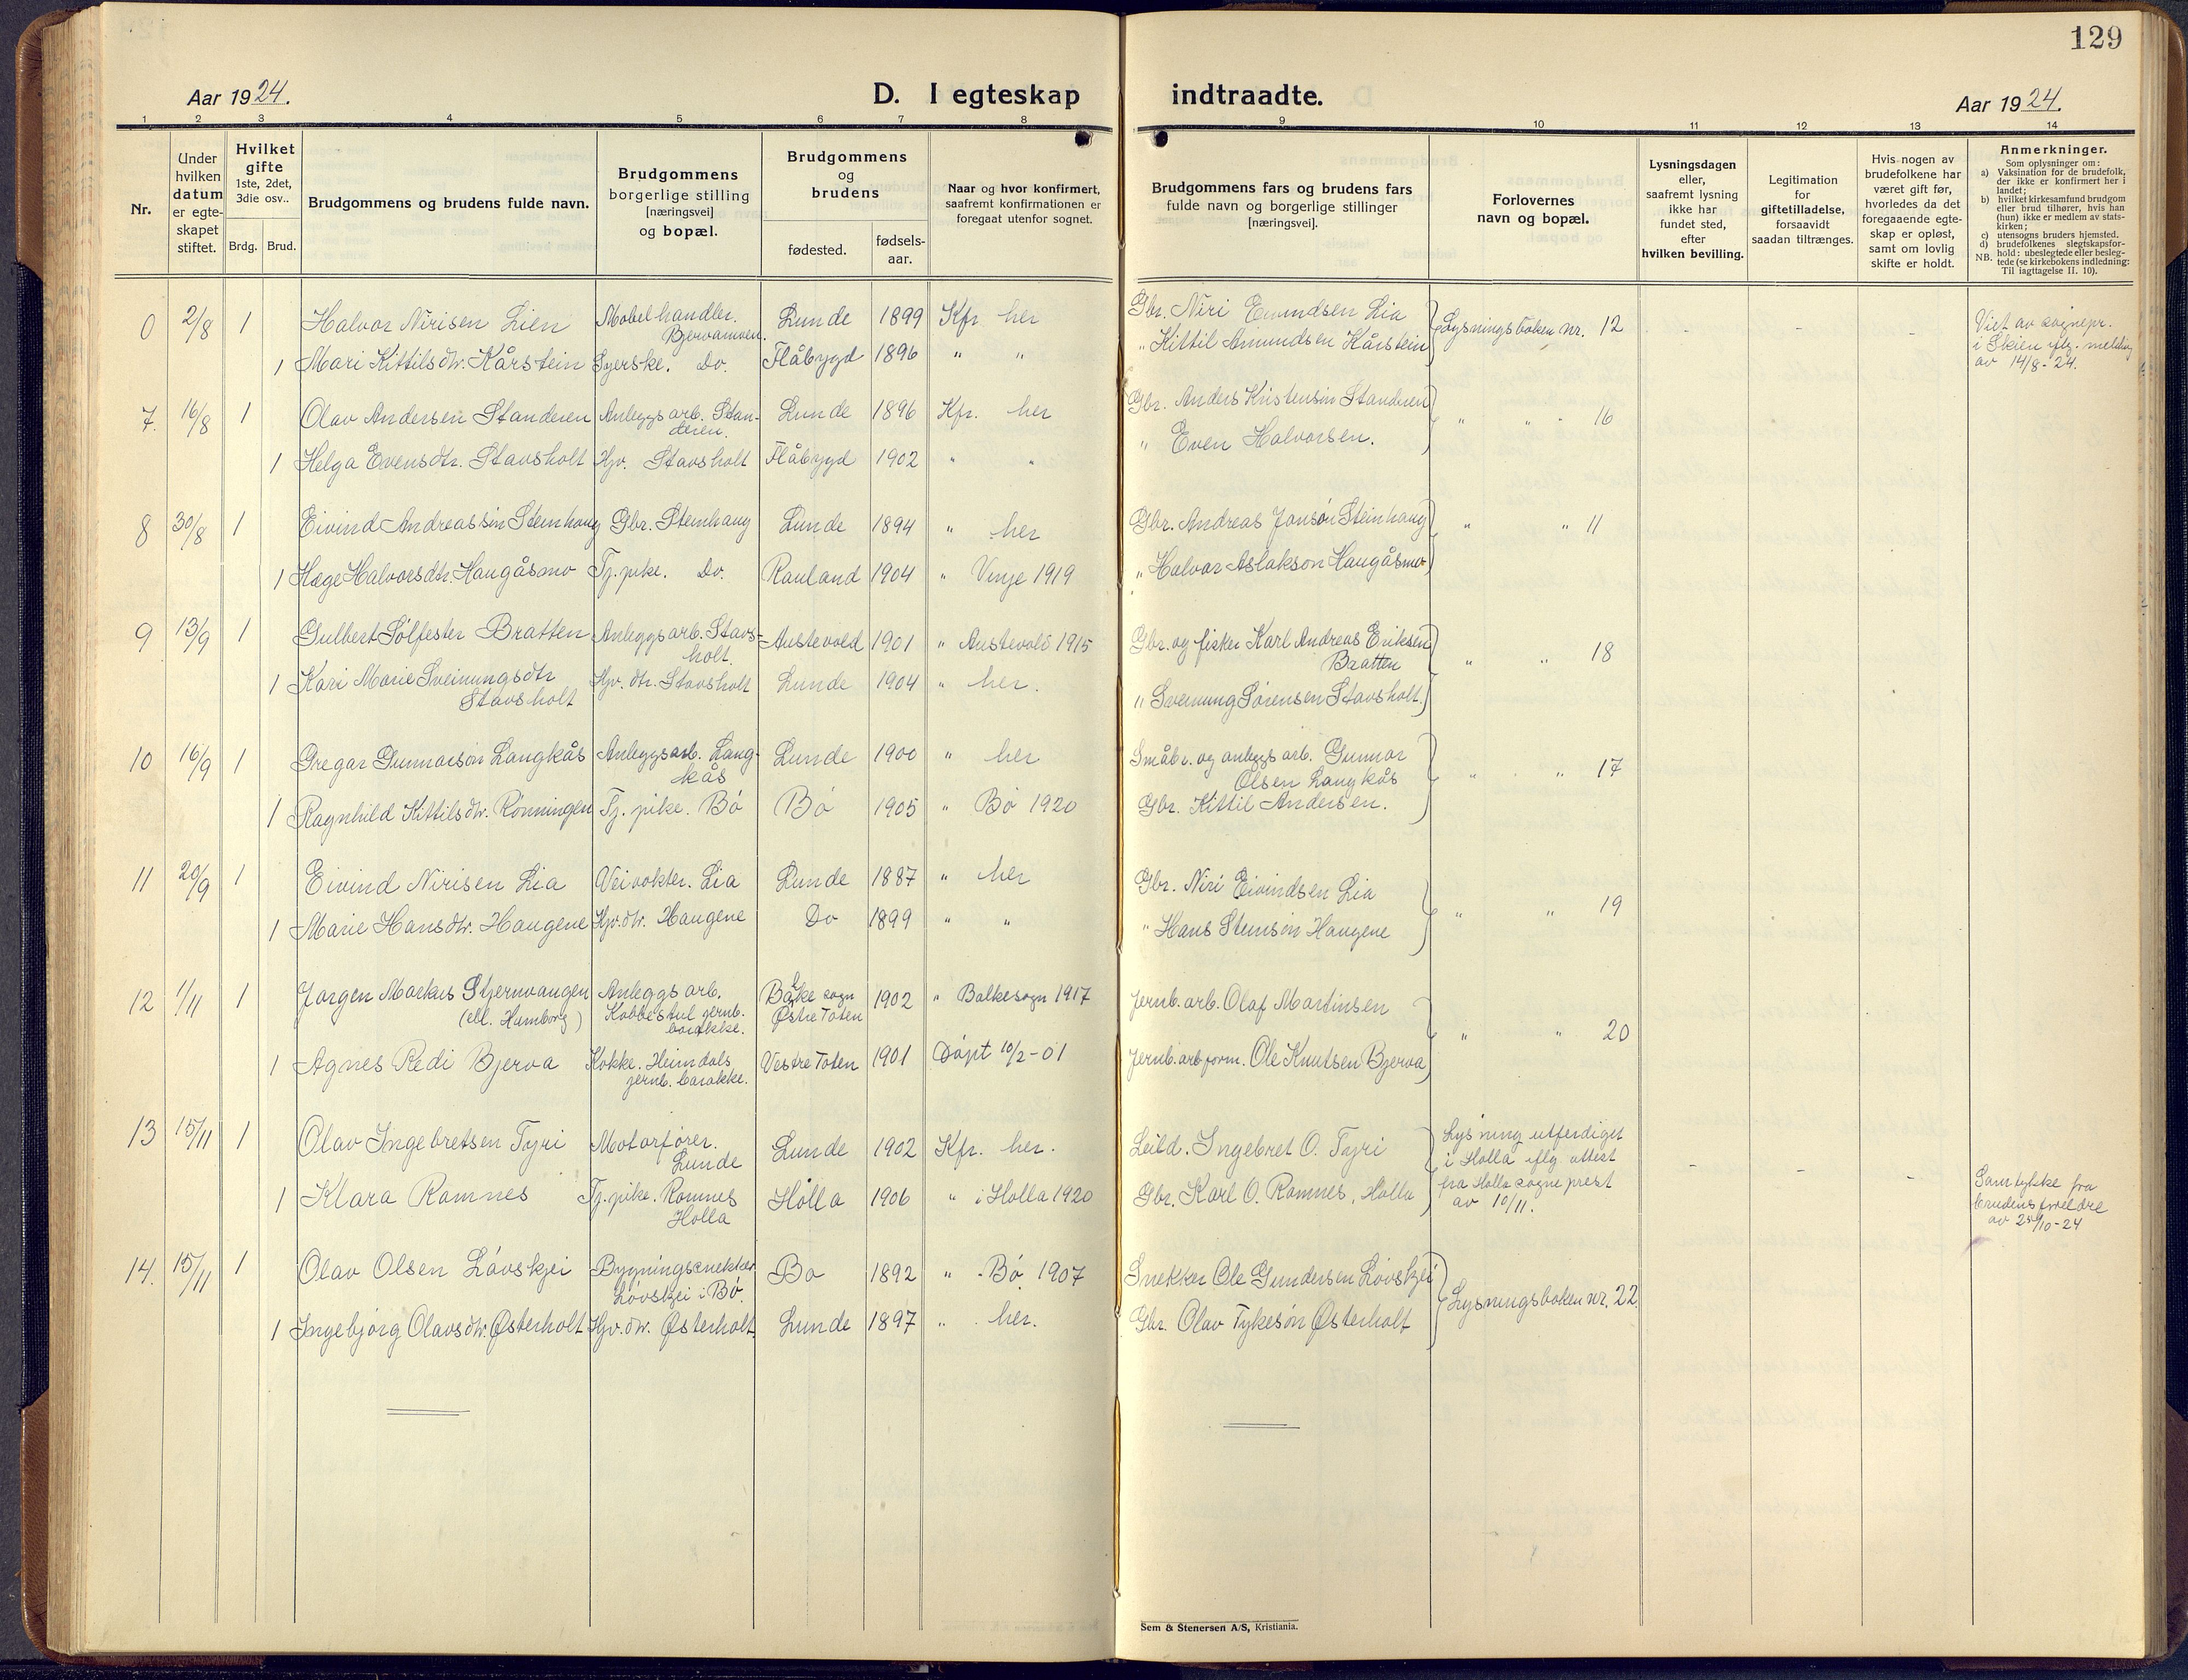 129
Aar 1924.
D. I egteskap indtraadte.
Aar 1924.
1 2 3 4 5 6 7 8 9 10 11 12 13 14
Nr.
Under hvilken datum er egte-skapet stiftet.
Hvilket gifte 1ste, 2det, 3die osv..
Brdg. Brud.
Brudgommens og brudens fulde navn.
Brudgommens borgerlige stilling [næringsvei] og bopæl.
Brudgommens og brudens
fødested.
fødsels-aar.
Naar og hvor konfirmert, saafremt konfirmationen er foregaat utenfor sognet.
Brudgommens fars og brudens fars fulde navn og borgerlige stillinger [næringsvei].
Forlovernes navn og bopæl.
Lysningsdagen eller, saafremt lysning ikke har fundet sted, efter hvilken bevilling.
Legitimation for giftetilladelse, forsaavidt saadan tiltrænges.
Hvis nogen av brudefolkene har været gift før, hvorledes da det foregaaende egte-skap er opløst, samt om lovlig skifte er holdt.
Anmerkninger.
Som oplysninger om:
a) Vaksination for de brudefolk, der ikke er konfirmert her i landet;
b) hvilket kirkesamfund brudgom eller brud tilhører, hvis han (hun) ikke er medlem av stats-kirken;
c) utensogns bruders hjemsted.
d) brudefolkenes slegtskapsfor-hold: ubeslegtede eller besleg-tede (se kirkebokens indledning:
NB. Til iagttagelse II. 10).
0 2/8 1 Halvor Nirisen Lien Møbelhandler. Lunde 1899 Kfr. her Gbr. Niri Eivindsen Lia Lysningsboken nr. 12 - - - Viet av sognepr.
i Skien iflg. melding
av 14/8-24.
1 Mari Kittilsdtr. Kårstein Syerske. Do. Flåbygd 1896 " " " Kittil Amundsen Kårstein
7. 16/8 1 Olav Andersen Standeren Anleggsarb. Stan-
deren. Lunde 1896 Kfr. her Gbr. Anders Kristensøn Standeren " " " 16
1 Helga Evensdtr. Stavsholt Hjv. Stavsholt Flåbygd 1902 " " " Even Halvorsen.
8 30/8 1 Eivind Andreassøn Steinhaug Gbr. Steinhaug Lunde 1894 " her Gbr. Andreas Jonsøn Steinhaug " " 11
1 Hæge Halvorsdtr. Haugåsmo Tj.pike. Do. Rauland 1904 " Vinje 1919 " Halvor Aslakson Haugåsmo
9 13/9 1 Gulbert Sølfester Bratten Anleggsarb. Stavs-
holt. Austevold 1901 " Austevold 1915 Gbr. og fisker Karl Andreas Eriksen
Bratten " " 18
1 Kari Marie Sveinungsdtr
Stavsholt Hjv. dtr. Stavsholt Lunde 1904 " her. " Sveinung Sørensen Stavsholt.
10 16/9 1 Gregar Gunnarsøn Langkås Anleggsarb. Lang-
kås Lunde 1900 " her Småbr. og anleggsarb. Gunnar
Olsen Langkås " " 17
1 Ragnhild Kittilsdtr. Rønningen Tj.pike. Bø Bø 1905 " Bø 1920 Gbr. Kittil Andersen.
11 20/9 1 Eivind Nirisen Lia Veivokter. Lia Lunde 1887 " her Gbr. Niri Eivindsen Lia " " 19
1 Marie Hansdtr. Haugene Hjv.dtr. Haugene Do 1899 " " " Hans Steinsøn Haugene
12 1/11 1 Jørgen Markus Stjernvangen
(ell. Hamborg) Anleggsarb.
Kobbestul jernb.
barakke. Balke sogn
Østre Toten 1902 " Balkesogn 1917 Jernb.arb. Olaf Martinsen " " 20
1 Agnes Redi Bjerva Kokke. Heimdals
jernb. barakke. Vestre Toten 1901 Døpt 10/2-01 Jernb.arb.form. Ole Knutsen Bjerva
13 15/11 1 Olav Ingebretsen Tyri Motorfører.
Lunde Lunde 1902 Kfr. her. Leild. Ingebret O. Tyri Lysning utferdiget
i Holla iflg. attest
fra Holla sogneprest
av 10/11. - - -
1 Klara Romnes Tj.pike. Romnes
Holla Holla 1906 " i Holla 1920 Gbr. Karl O. Romnes, Holla Samtykke fra
brudens foreldre
av /10-24
14. 15/11 1 Olav Olsen Løvskjei Bygningssnekker
Løvskjei i Bø. Bø 1892 " Bø 1907 Snekker Ole Gundersen Løvskjei Lysningsboken nr. 22.
1 Ingebjørg Olavsdtr. Østerholt Hjv.dtr. Østerholt. Lunde 1897 " her. Gbr. Olav Tykesøn Østerholt
Sem & Stenersen A/S, Kristiania.